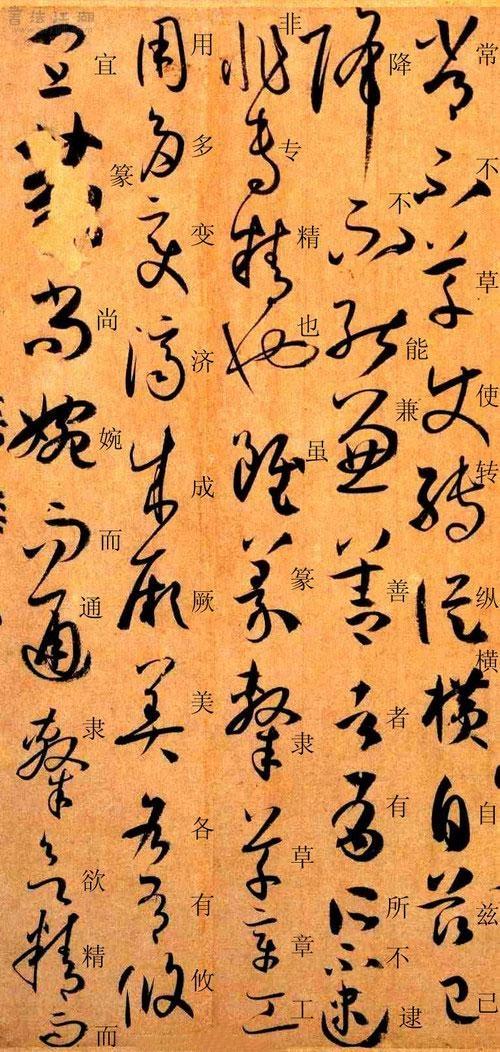 常不草使转纵横自兹己
降不能兼善者有所不逮
非专精也虽篆隶草章工
用多变济成厥美各有攸
宜篆尚婉而通隶欲精而
書法江湖